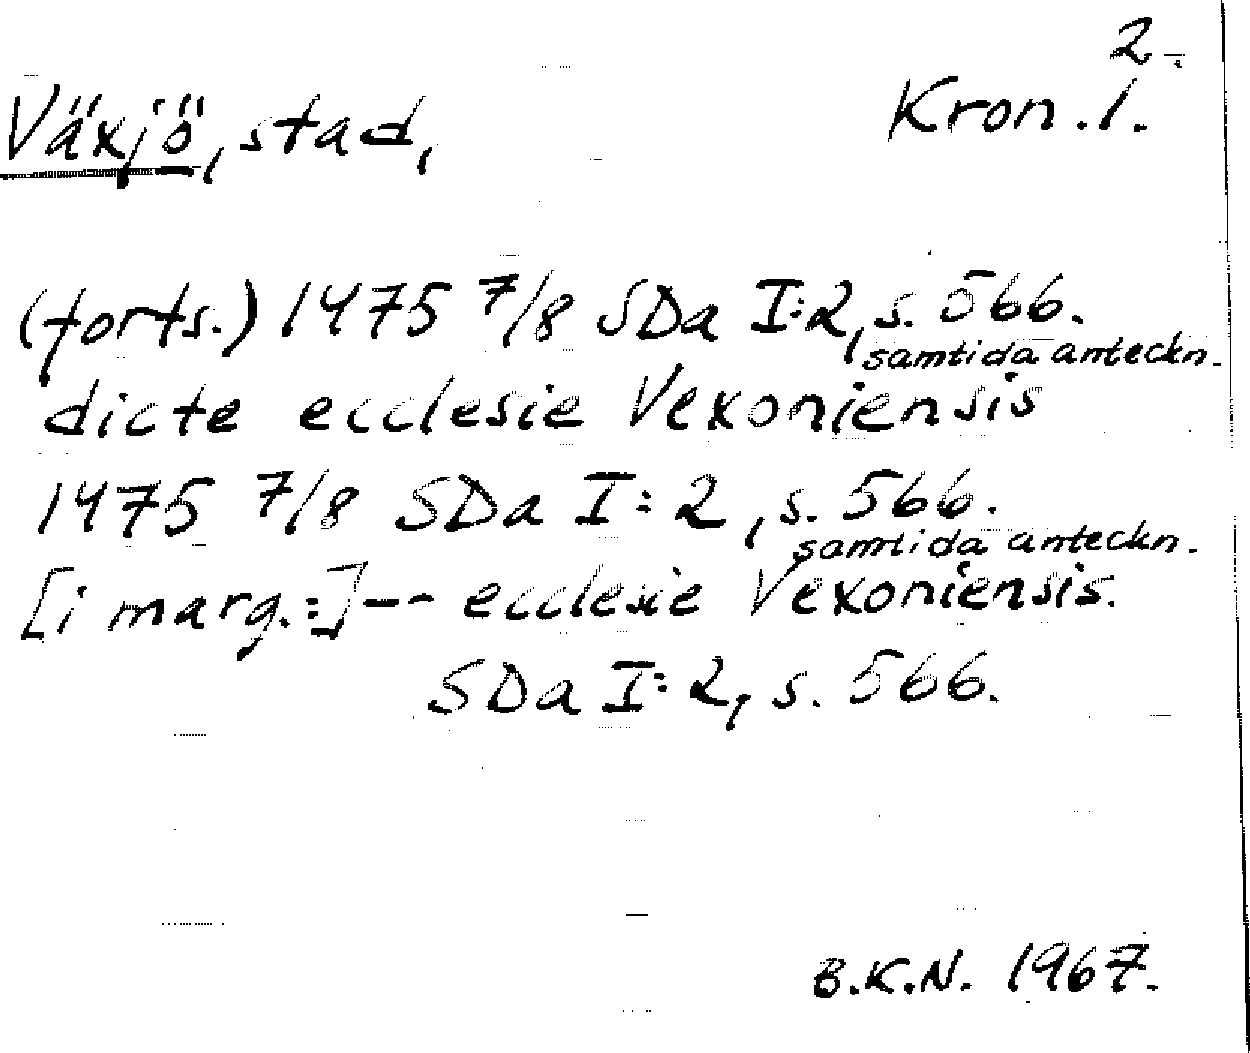 2.
Växjö, stad, Kron. l.
(forts.) 1475 7/8 SDa I:2, s. 566.
samtida anteckn.
dicte ecclesie Vexoniensis
1475 7/8 SDa I:2, s. 566.
samtida anteckn.
[i marg.:] -- ecclesie Vexoniensis.
SDa I:2, s. 566.
B.K.N. 1967.